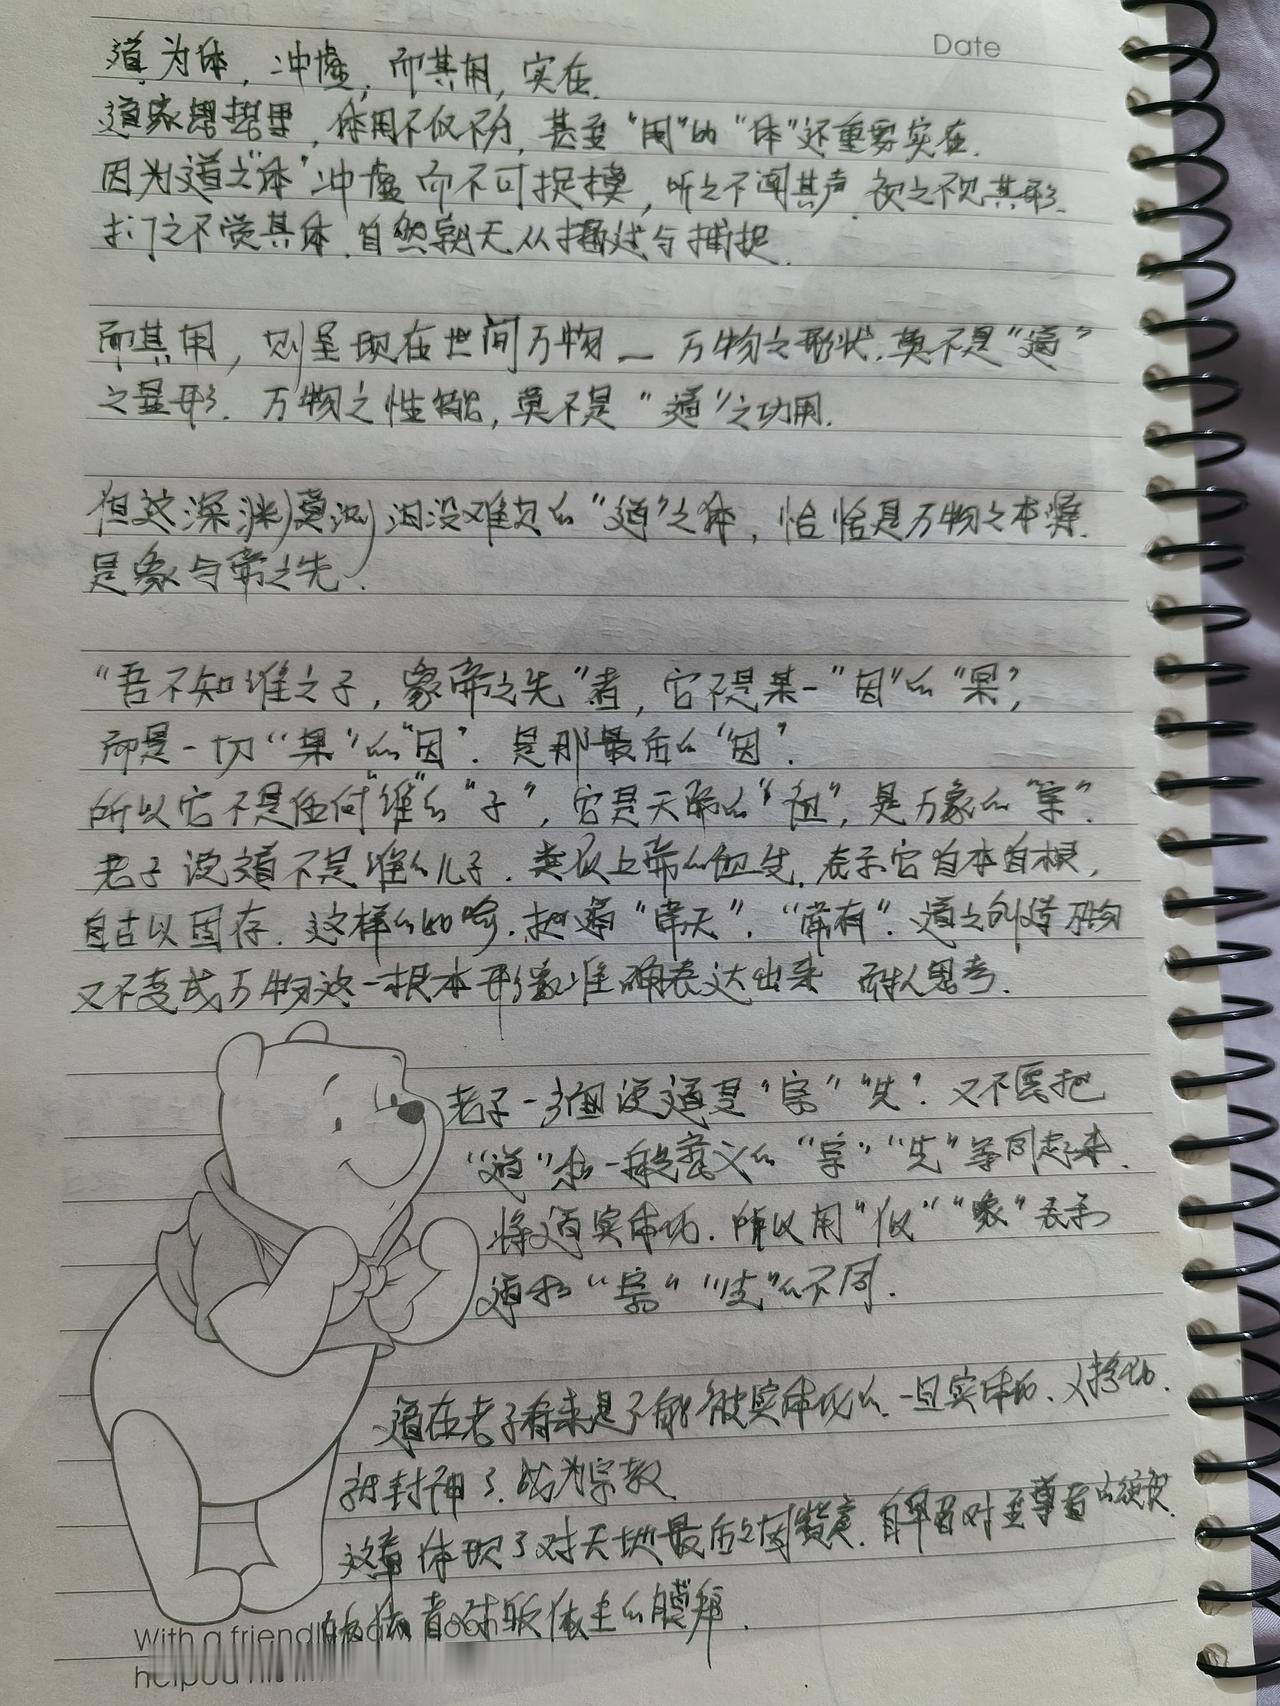 Date
道为体，冲虚，而其用，实在.
道家智慧里，体用不仅不分，甚至“用”的“体”还重要实在.
因为道之“体”冲虚而不可捉摸，听之不闻其声.视之不见其形.
扪之不觉其体.自然就无从描述与捕捉.
而其用，则呈现在世间万物— 万物之形状.莫不是“道”
之显形. 万物之性能，莫不是“道”之功用.
但这深渊莫测 汩没难见的“道”之体，恰恰是万物之本源.
是象与帝之先.
“吾不知谁之子，象帝之先”者，它不是某一“因”的“果”，
而是一切“果”的“因”. 是那最后的“因”.
所以它不是任何“谁”的“子”，它是天帝的“祖”，是万象的“宗”.
老子说道不是谁的儿子. 类似上帝的 表示它自本自根，
自古以固存. 这样的比喻.把道 “常有”. 道之创造万物
又不变成万物这一根本形象准确表达出来 耐人思考.
老子一方面说道是“宗”“先”. 又不愿把
“道”和一般意义的“宗”“先”等同起来.
将道实体化. 所以用“似”“象”表示
道和“宗”“先”的不同.
道在老子看来是不能被实体化的.一旦实体化.
就封神了.成为宗教
这章体现了对天地最后之因 对至尊者的
者对皈依主的膜拜.
With a friend